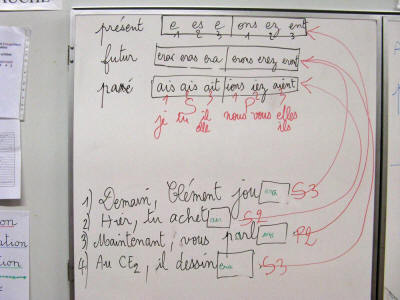 présent e es e ons ez ent
1 2 3 1 2 3
futur erai eras era erons erez eront
passé ais ais ait ions iez aient
1 2 3 1 2 3
S P
je tu il nous vous elles
elle ils
1) Demain, Clément jou era S3
2) Hier, tu achet S2
3) Maintenant, vous parl P2
4) Au CE2, il dessin era S3